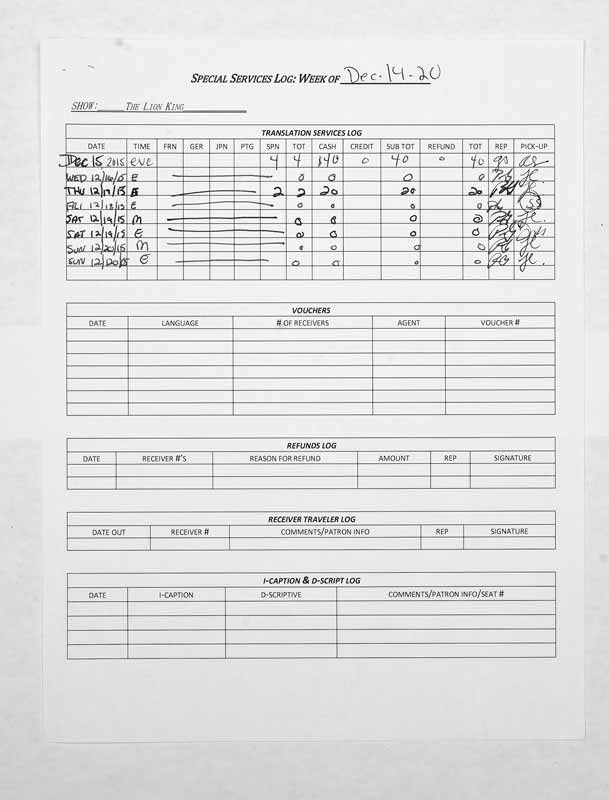 SPECIAL SERVICES LOG: WEEK OF Dec. 14-20
SHOW: THE LION KING
TRANSLATION SERVICES LOG
DATE TIME FRN GER JPN PTG SPN TOT CASH CREDIT SUB TOT REFUND TOT REP PICK-UP
Dec 15 2015 eve 4 4 $40 0 40 0 40
WED 12/16/15 E 0 0 0 0
THU 12/17/15 E 2 2 20 20 20
FRI 12/18/15 E 0 0 0 0
SAT 12/19/15 M 0 0 0 0
SAT 12/19/15 E 0 0 0 0
SUN 12/20/15 M 0 0 0 0
SUN 12/20/15 E 0 0 0 0
VOUCHERS
DATE LANGUAGE # OF RECEIVERS AGENT VOUCHER #
REFUNDS LOG
DATE RECEIVER #'S REASON FOR REFUND AMOUNT REP SIGNATURE
RECEIVER TRAVELER LOG
DATE OUT RECEIVER # COMMENTS/PATRON INFO REP SIGNATURE
I-CAPTION & D-SCRIPT LOG
DATE I-CAPTION D-SCRIPTIVE COMMENTS/PATRON INFO/SEAT #